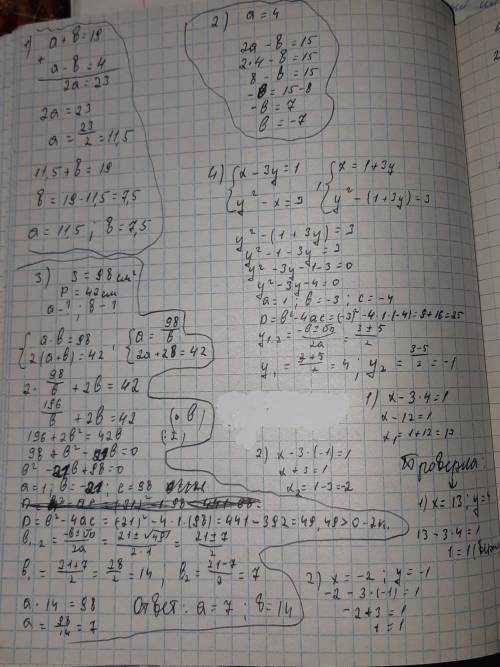 1) a + b = 19
+
a - b = 4
2a = 23
2a = 23
a = 23/2 = 11,5
11,5 + b = 19
b = 19 - 11,5 = 7,5
a = 11,5 ; b = 7,5
2) a = 4
2a - b = 15
2·4 - b = 15
8 - b = 15
-b = 15 - 8
-b = 7
b = -7
3) S = 98 см²
P = 42 см
a - ? , b - ?
{ a·b = 98 { a = 98/b
2(a+b) = 42 , 2a + 2b = 42
2· 98/b + 2b = 42
196/b + 2b = 42 (·b)
196 + 2b² = 42b (:2)
98 + b² - 21b = 0
b² - 21b + 98 = 0
a = 1; b = -21; c = 98
D = b² - 4ac = (21)² - 4·1·(98) = 441 - 392 = 49, 49 > 0 - 2к.
b₁,₂ = -b±√D/2a = 21±√49/2·1 = 21±7/2
b₁ = 21+7/2 = 28/2 = 14 ; b₂ = 21-7/2 = 7
a·14 = 98
a = 98/14 = 7
Ответ: a = 7 ; b = 14
4) { x - 3y = 1 { x = 1 + 3y
y² - x = 3 , y² - (1+3y) = 3
y² - (1+3y) = 3
y² - 1 - 3y = 3
y² - 3y - 1 - 3 = 0
y² - 3y - 4 = 0
a = 1; b = -3; c = -4
D = b² - 4ac = (-3)² - 4·1·(-4) = 9 + 16 = 25
y₁,₂ = -b±√D/2a = 3±5/2
y₁ = 3+5/2 = 4 ; y₂ = 3-5/2 = -1
1) x - 3·4 = 1
x - 12 = 1
x₁ = 1 + 12 = 13
2) x - 3·(-1) = 1
x + 3 = 1
x₂ = 1 - 3 = -2
Проверка:
1) x = 13 ; y = 4
13 - 3·4 = 1
1 = 1
2) x = -2 ; y = -1
-2 - 3·(-1) = 1
-2 + 3 = 1
1 = 1